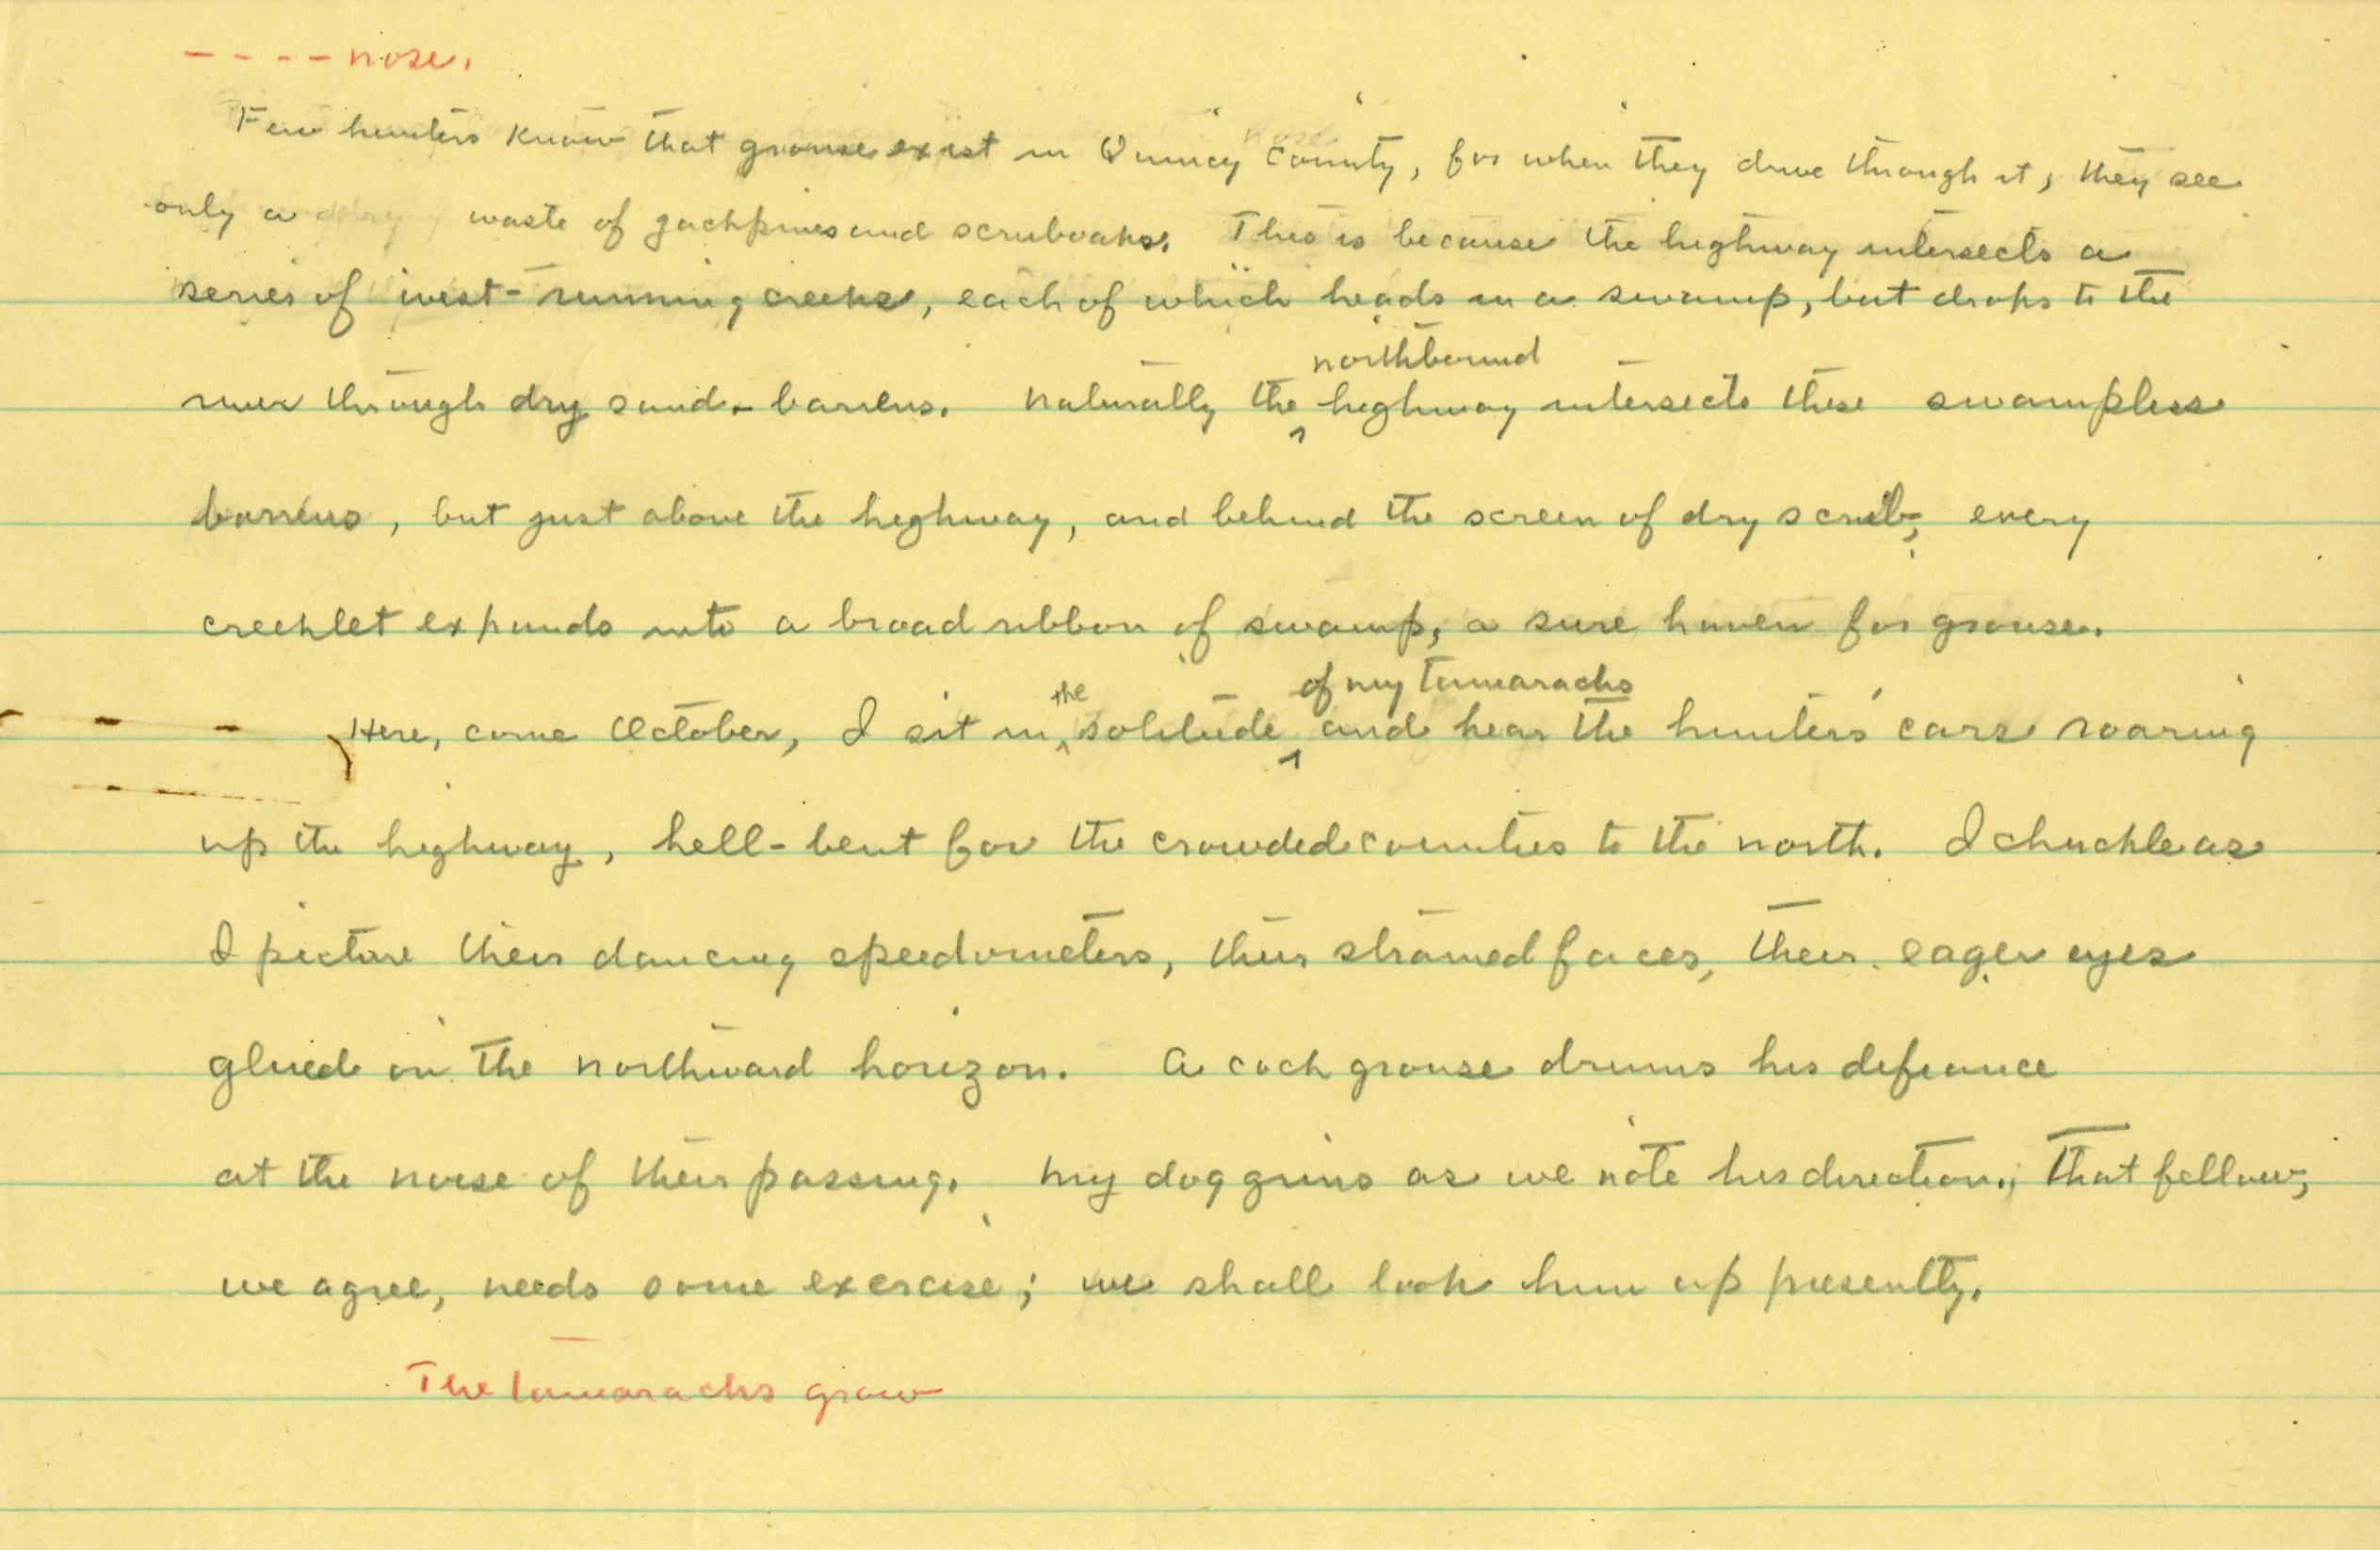 - - - - nose.
Few hunters know that grouse exist in Quincy County, for when they drive through it, they see
only a waste of jackpines and scruboaks. This is because the highway intersects a
series of west-running creeks, each of which heads in a swamp, but drops to the
northbound
river through dry sand-barrens. Naturally the ^ highway intersects these swampless
barrens, but just above the highway, and behind the screen of dry scrub, every
creeklet expands into a broad ribbon of swamp, a sure haven for grouse.
the of my tamaracks
Here, come October, I sit in ^ solitude ^ and hear the hunters' cars roaring
up the highway, hell-bent for the crowded counties to the north. I chuckle as
I picture their dancing speedometers, their strained faces, their eager eyes
glued on the northward horizon. A cock grouse drums his defiance
at the noise of their passing. My dog grins as we note his direction. That fellow,
we agree, needs some exercise; we shall look him up presently.
The tamaracks grow